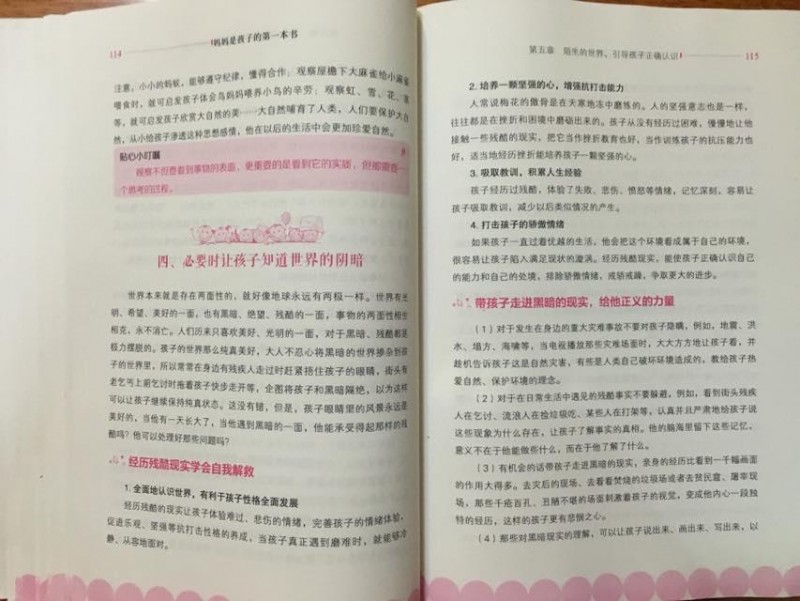 114
妈妈是孩子的第一本书
注意，小小的蚂蚁，能够遵守纪律，懂得合作；观察屋檐下大麻雀给小麻雀
喂食时，就可启发孩子体会鸟妈妈喂养小鸟的辛劳；观察虹、雪、花、草
等，就可启发孩子欣赏大自然的美……大自然哺育了人类，人们要保护大自
然，从小给孩子渗透这种思想感情，他在以后的生活中会更加珍爱自然。
贴心小叮嘱
观察不但要看到事物的表面，更重要的是看到它的实质，但都需要一
个思考的过程。
四、必要时让孩子知道世界的阴暗
世界本来就是存在两面性的，就好像地球永远有两极一样。世界有光
明、希望、美好的一面，也有黑暗、绝望、残酷的一面，事物的两面性相生
相克，永不消亡。人们历来只喜欢美好、光明的一面，对于黑暗、残酷都是
极力摆脱的。孩子的世界那么纯真美好，大人不忍心将黑暗的世界掺杂到孩
子的世界里，所以常常在身边有残疾人走过时赶紧捂住孩子的眼睛，街头有
老乞丐上前乞讨时拖着孩子快步走开等，企图将孩子和黑暗隔绝，以为这样
可以让孩子继续保持纯真状态。这没有错，但是，孩子眼睛里的风景永远是
美好的，当他有一天长大了，当他遇到黑暗的一面，他能承受得起那样的残
酷吗？他可以处理好那些问题吗？
经历残酷现实学会自我解救
1. 全面地认识世界，有利于孩子性格全面发展
经历残酷的现实让孩子体验难过、悲伤的情绪，完善孩子的情绪体验，
促进乐观、坚强等抗打击性格的养成，当孩子真正遇到磨难时，就能够冷
静、从容地面对。
第五章 陌生的世界，引导孩子正确认识
115
2. 培养一颗坚强的心，增强抗打击能力
人常说梅花的傲骨是在天寒地冻中磨练的。人的坚强意志也是一样，
往往都是在挫折和困境中磨砺出来的。孩子从没有经历过困难，慢慢地让他
接触一些残酷的现实，把它当作挫折教育也好，当作训练孩子的抗压能力也
好，适当地经历挫折能培养孩子一颗坚强的心。
3. 吸取教训，积累人生经验
孩子经历过残酷，体验了失败、悲伤、愤怒等情绪，记忆深刻，容易让
孩子吸取教训，减少以后类似情况的产生。
4. 打击孩子的骄傲情绪
如果孩子一直过着优越的生活，他会把这个环境看成属于自己的环境，
很容易让孩子陷入满足现状的漩涡。经历残酷现实，能使孩子正确认识自己
的能力和自己的处境，排除骄傲情绪，戒骄戒躁，争取更大的进步。
带孩子走进黑暗的现实，给他正义的力量
（1）对于发生在身边的重大灾难事故不要对孩子隐瞒，例如，地震、洪
水、塌方、海啸等，当电视播放那些灾难场面时，大大方方地让孩子看，并
趁机告诉孩子这是自然灾害，有些是人类自己破坏环境造成的，教给孩子热
爱自然、保护环境的理念。
（2）对于在日常生活中遇见的残酷事实不要躲避，例如，看到街头残疾
人在乞讨、流浪人在捡垃圾吃、某些人在打架等，认真并且严肃地给孩子说
这些现象为什么存在，让孩子了解事实的真相。他的脑海里留下这些记忆，
意义不在于他能做什么，而在于他了解了什么。
（3）有机会的话带孩子走进黑暗的现实，亲身的经历比看到一千幅画面
的作用大得多。去灾后的现场、去看看焚烧的垃圾场或者去贫民窟、屠宰现
场，那些千疮百孔、丑陋不堪的场面刺激着孩子的视觉，变成他内心一段独
特的经历，这样的孩子更有悲悯之心。
（4）那些对黑暗现实的理解，可以让孩子说出来、画出来、写出来，以